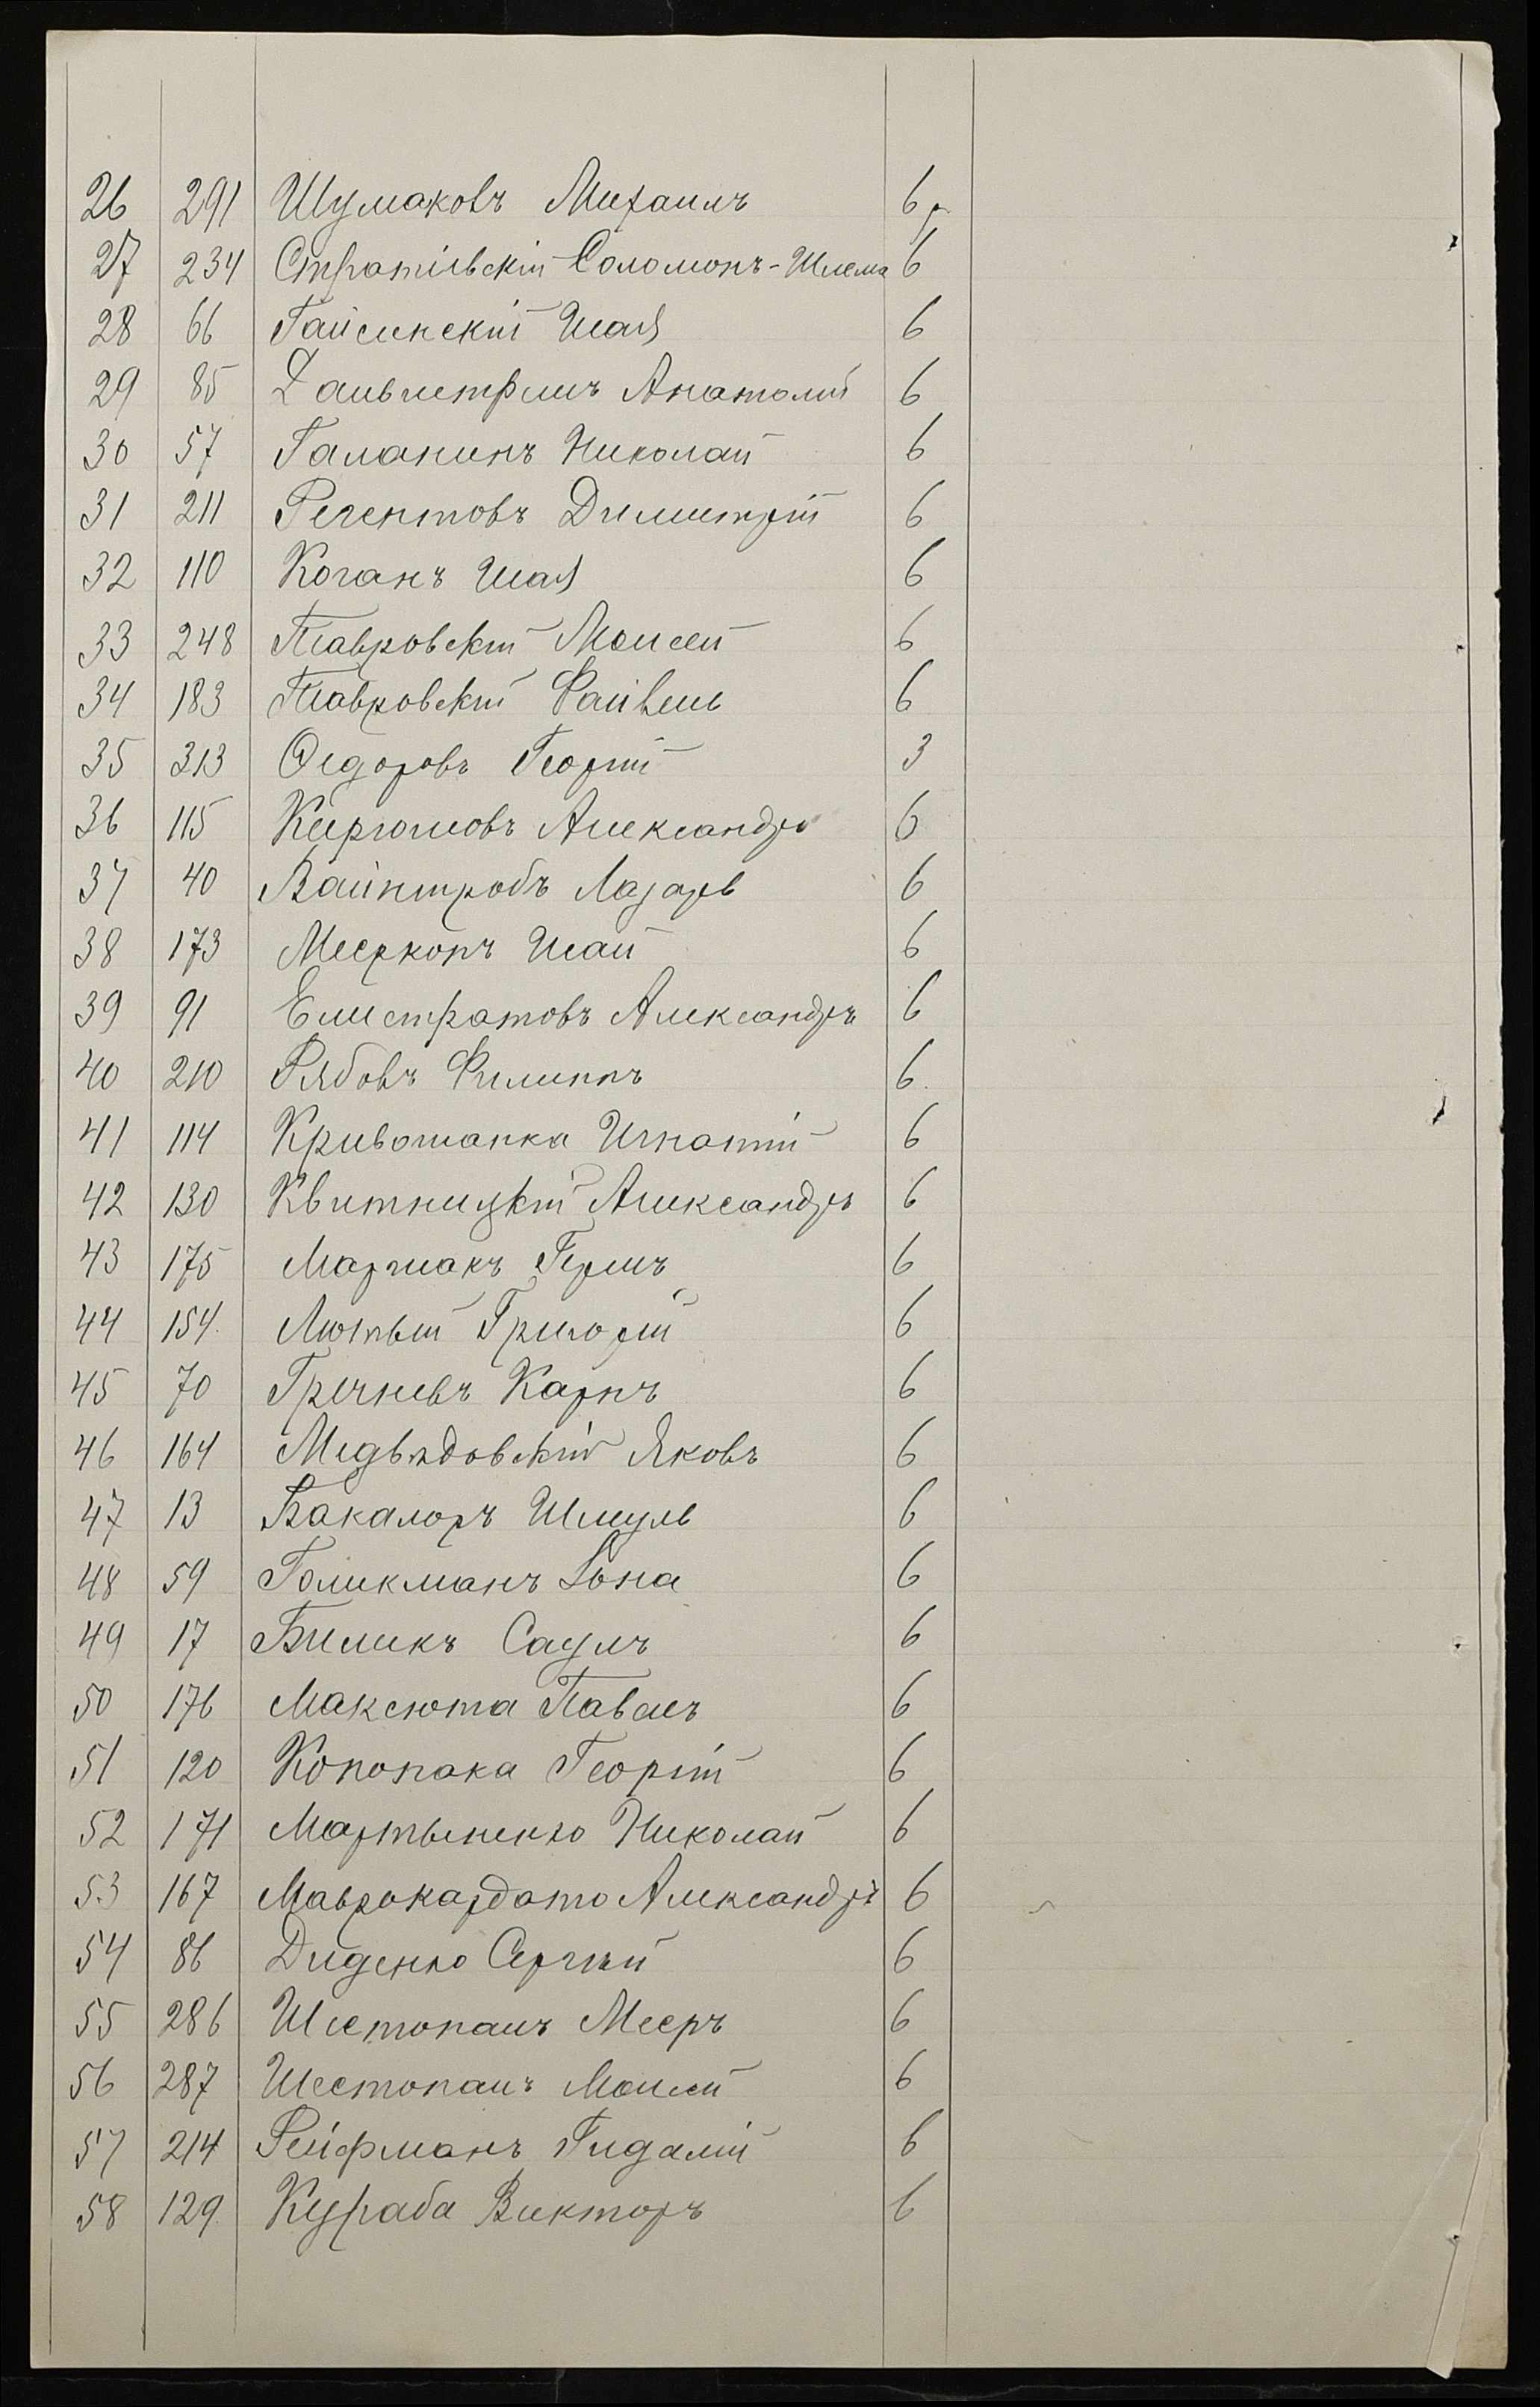 26 291 Шумаковъ Михаилъ 6 р
27 234 Стратіевскій Соломонъ-Шлема 6
28 66 Гайсинскій Шая 6
29 85 Анатолій 6
30 57 Галанинъ Николай 6
31 211 Регентовъ Димитрій 6
32 110 Коганъ Шая 6
33 248 Тавровскій Моисей 6
34 183 Тавровскій Файвель 6
35 313 Ѳедоровъ Георгій 3
36 115 Кирюшовъ Александръ 6
37 40 Вайнтробъ Лазарь 6
38 173 Исай 6
39 91 Елистратовъ Александръ 6
40 210 Рябовъ Филиппъ 6
41 114 Кривошапка Игнатій 6
42 130 Квитницкій Александръ 6
43 175 Маршакъ Гершъ 6
44 154 Лютый Григорій 6
45 70 Гречневъ Карпъ 6
46 164 Медвѣдовскій Яковъ 6
47 13 Бакалоръ Шмуль 6
48 59 Голикманъ Іона 6
49 17 Биликъ Саулъ 6
50 176 Максюта Павелъ 6
51 120 Конопака Георгій 6
52 171 Мартыненко Николай 6
53 167 Маврокардато Александръ 6
54 86 Диденко Сергѣй 6
55 286 Шестопалъ Мееръ 6
56 287 Шестопалъ Моисей 6
57 214 Рейфманъ Гидалій 6
58 129 Кураба Викторъ 6